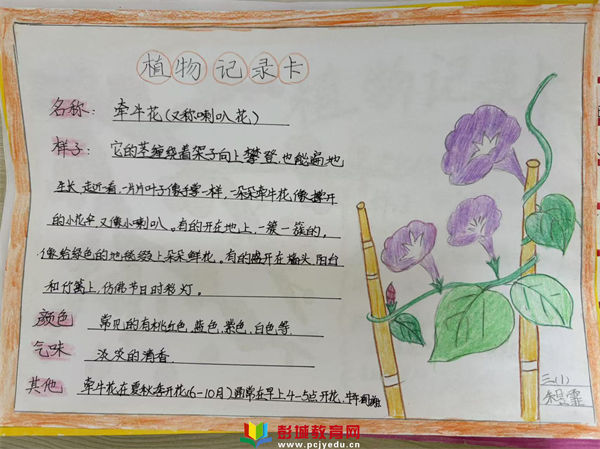 植物记录卡
名称： 牵牛花（又称喇叭花）
样子： 它的茎缠绕着架子向上攀登，也能遍地
生长，走近看，一片片叶子像手掌一样，一朵朵牵牛花，像撑开
的小花伞，又像小喇叭。有的开在地上，一簇一簇的，
像给绿色的地毯缀上朵朵鲜花。有的盛开在墙头，阳台
和竹篱上，仿佛节日的彩灯。
颜色 常见的有桃红色，蓝色，紫色，白色等
气味 淡淡的清香
其他 牵牛花在夏秋季开花（6-10月）通常在早上4-5点开花，
三（1）
彭城教育网
www.pcjyedu.cn